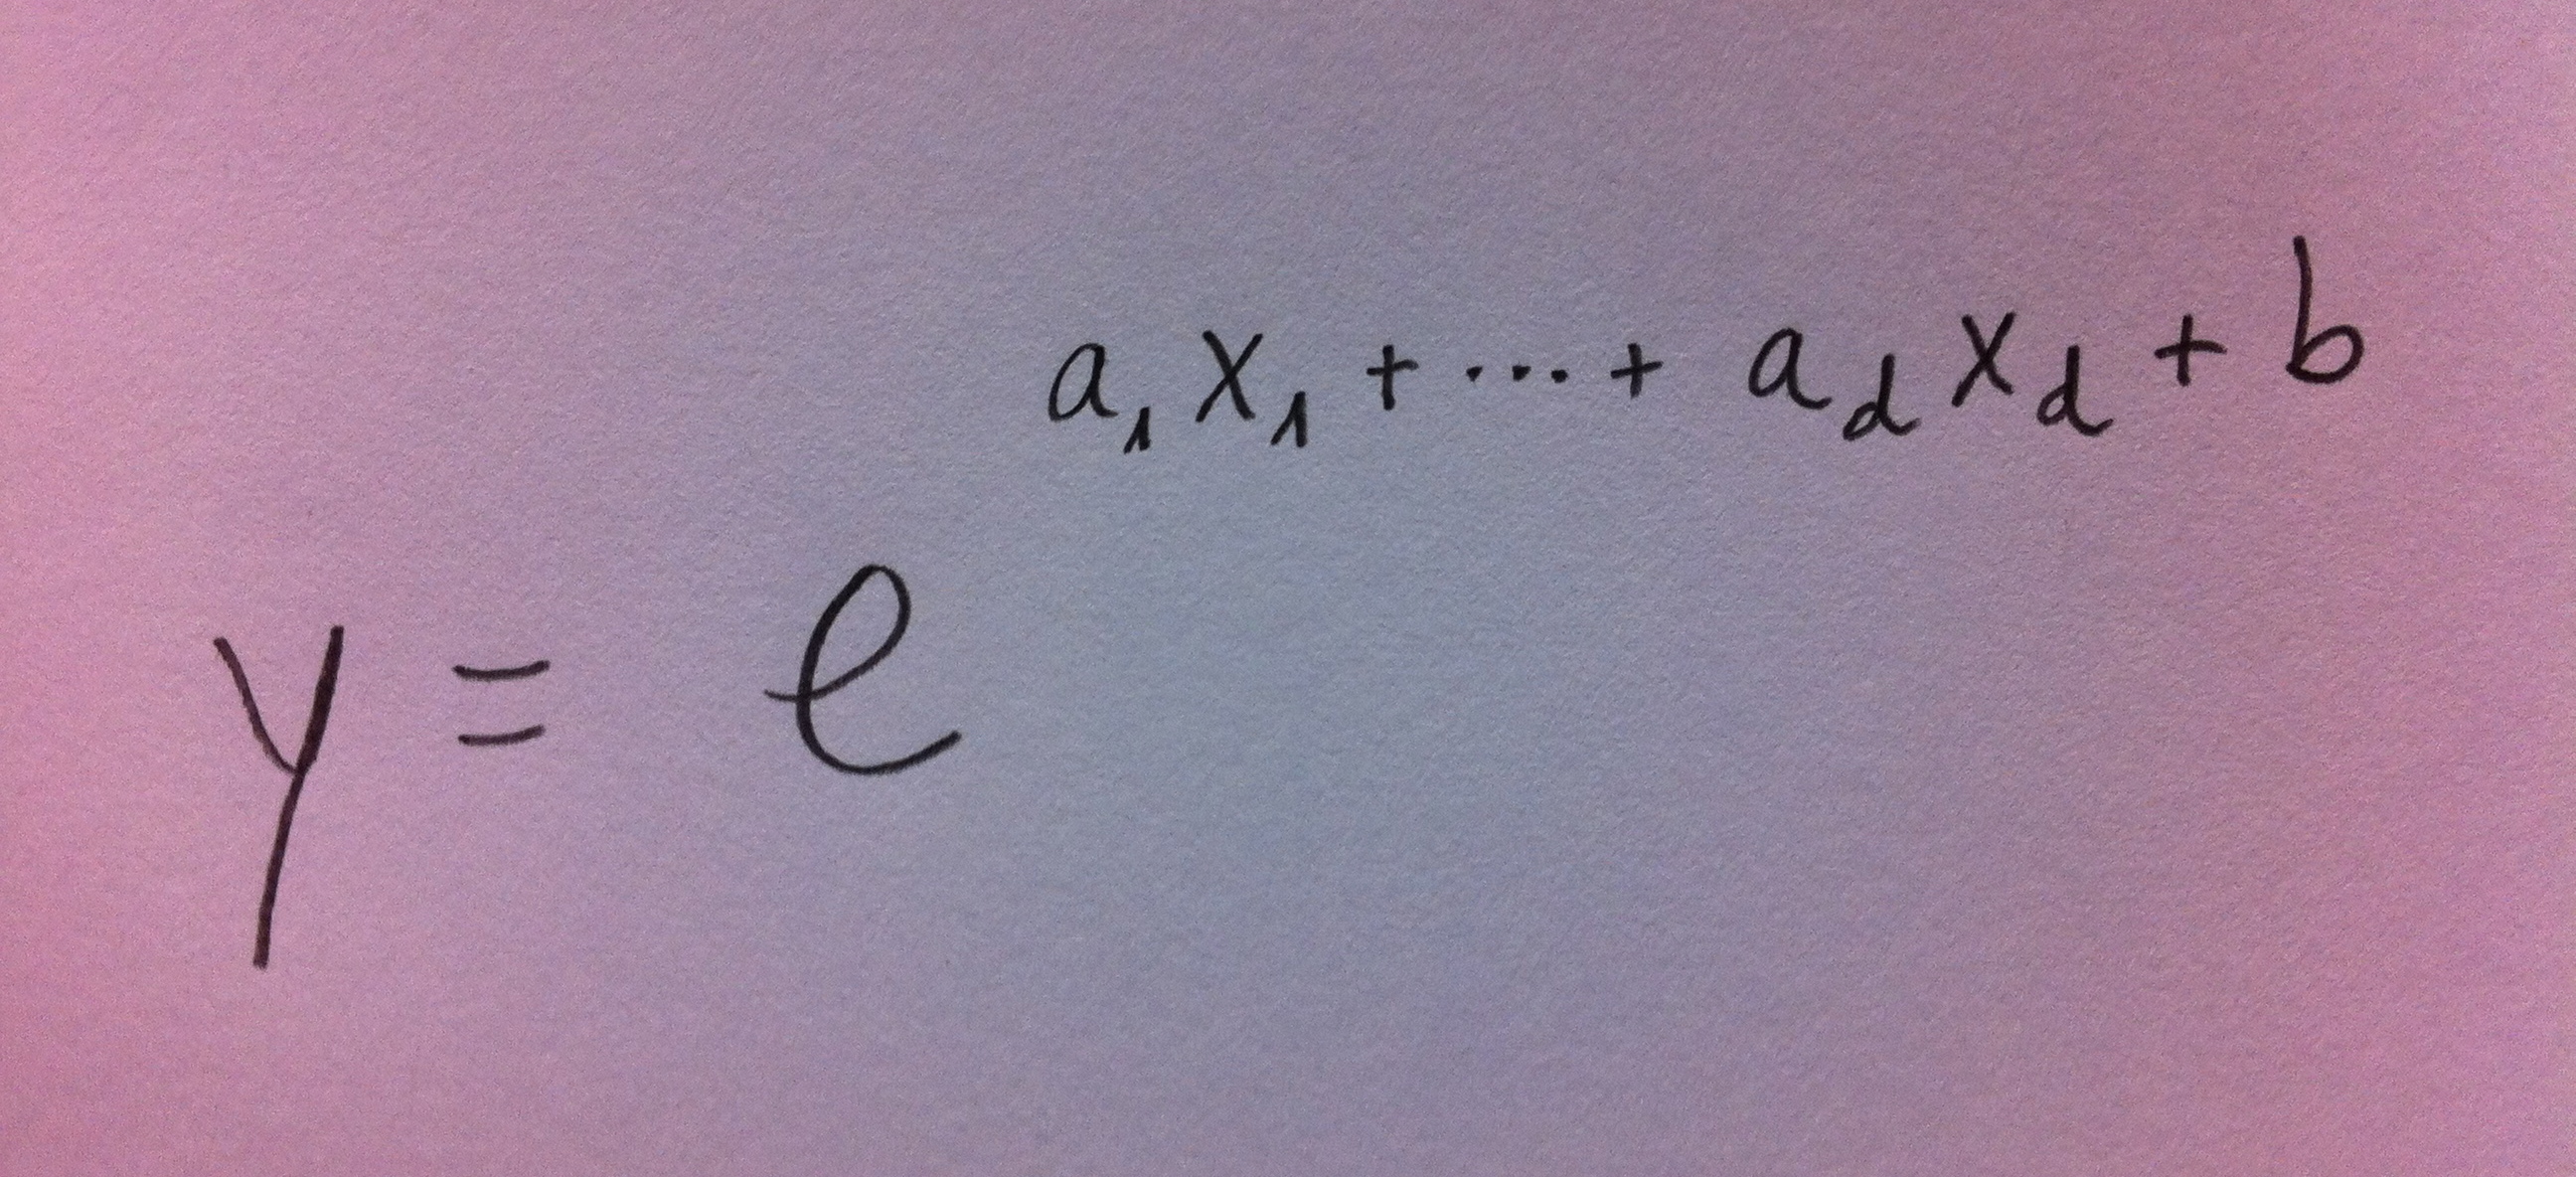 y = e^{a_1 x_1 + ... + a_d x_d + b}